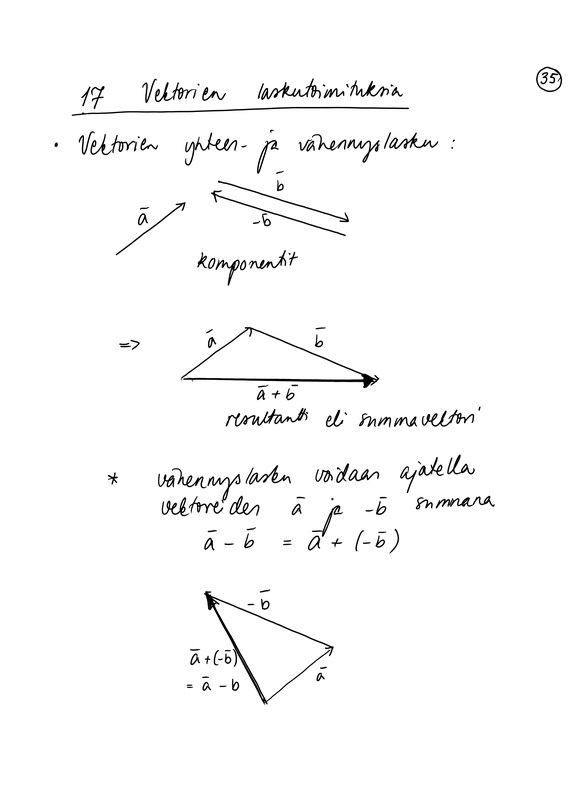 35
17 Vektorien laskutoimituksia
• Vektorien yhteen- ja vähennyslasku :
b̄
ā
-b̄
komponentit
=> ā b̄
ā + b̄
resultantti eli summavektori
* vähennyslasku voidaan ajatella
vektoreiden ā ja -b̄ summana
ā - b̄ = ā + (-b̄)
-b̄
ā + (-b̄)
ā
= ā - b